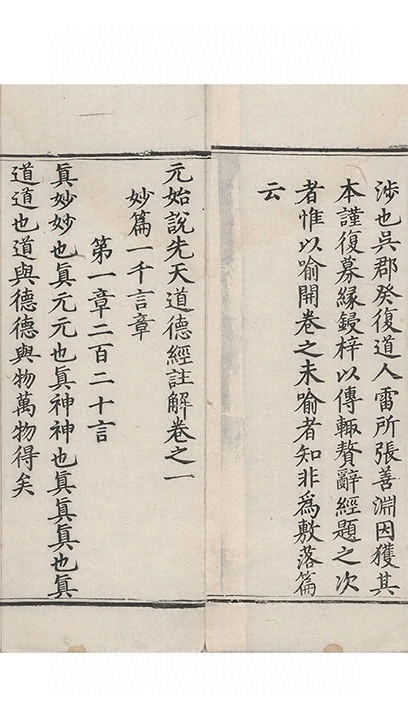 涉也吳郡癸復道人雷所張善淵因獲其
本謹復募緣鋟梓以傳輙贅辭經題之次
者惟以喻開卷之未喻者知非爲敷落篇
云
元始說先天道德經註解卷之一
妙篇一千言章
第一章二百二十言
眞妙妙也眞元元也眞神神也眞眞眞也眞
道道也道與德德與物萬物得矣